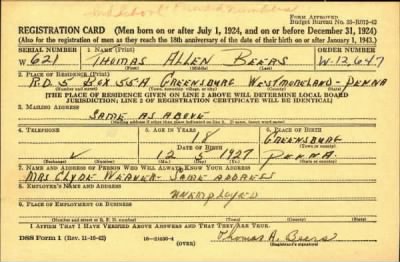 Form Approved
Budget Bureau No. 33-R012-42
REGISTRATION CARD (Men born on or after July 1, 1924, and on or before December 31, 1924)
(Also for the registration of men as they reach the 18th anniversary of the date of their birth on or after January 1, 1943.)
SERIAL NUMBER 1. NAME (Print) ORDER NUMBER
W 621 THOMAS ALLEN BEERS W-12,647
(First) (Middle) (Last)
2. PLACE OF RESIDENCE (Print)
R.D. 5 BOX 55A GREENSBURG WESTMORELAND - PENNA
(Number and street) (Town, township, village, or city) (County) (State)
[THE PLACE OF RESIDENCE GIVEN ON LINE 2 ABOVE WILL DETERMINE LOCAL BOARD
JURISDICTION; LINE 2 OF REGISTRATION CERTIFICATE WILL BE IDENTICAL]
3. MAILING ADDRESS
SAME AS ABOVE
4. TELEPHONE 5. AGE IN YEARS 6. PLACE OF BIRTH
18 GREENSBURG
DATE OF BIRTH (Town or county)
12 5 1927 PENNA
(Exchange) (Number) (Mo.) (Day) (Yr.) (State or country)
7. NAME AND ADDRESS OF PERSON WHO WILL ALWAYS KNOW YOUR ADDRESS
MRS CLYDE WEAVER - SAME ADDRESS
8. EMPLOYER'S NAME AND ADDRESS
UNEMPLOYED
9. PLACE OF EMPLOYMENT OR BUSINESS
(Number and street or R. F. D. number) (Town) (County) (State)
I AFFIRM THAT I HAVE VERIFIED ABOVE ANSWERS AND THAT THEY ARE TRUE.
DSS Form 1 (Rev. 11-16-42) (OVER) Thomas A. Beers
(Registrant's signature)